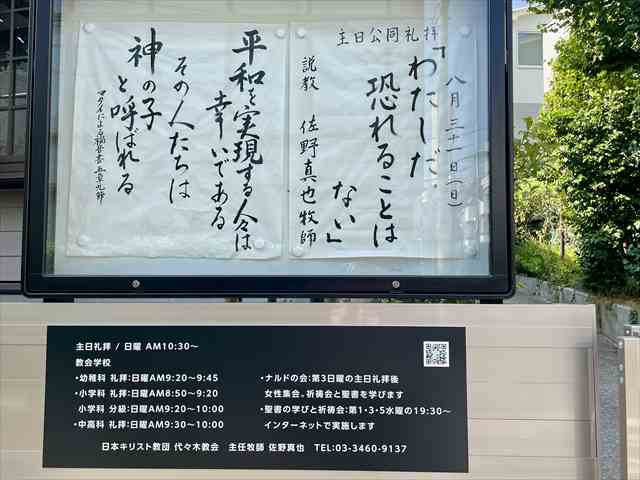 主日公同礼拝
八月三十一日(日)
「わたしだ。
恐れることは
ない」
説教 佐野真也牧師
平和を実現する人々は
幸いである
その人たちは
神の子
と呼ばれる
マタイによる福音書五章九節
主日礼拝 / 日曜 AM10:30～
教会学校
・幼稚科 礼拝:日曜AM9:20～9:45
・小学科 礼拝:日曜AM8:50～9:20
小学科 分級:日曜AM9:20～10:00
・中高科 礼拝:日曜AM9:30～10:00
・ナルドの会:第3日曜の主日礼拝後
女性集会。祈祷会と聖書を学びます
・聖書の学びと祈祷会:第1・3・5水曜の19:30～
インターネットで実施します
日本キリスト教団 代々木教会 主任牧師 佐野真也 TEL:03-3460-9137